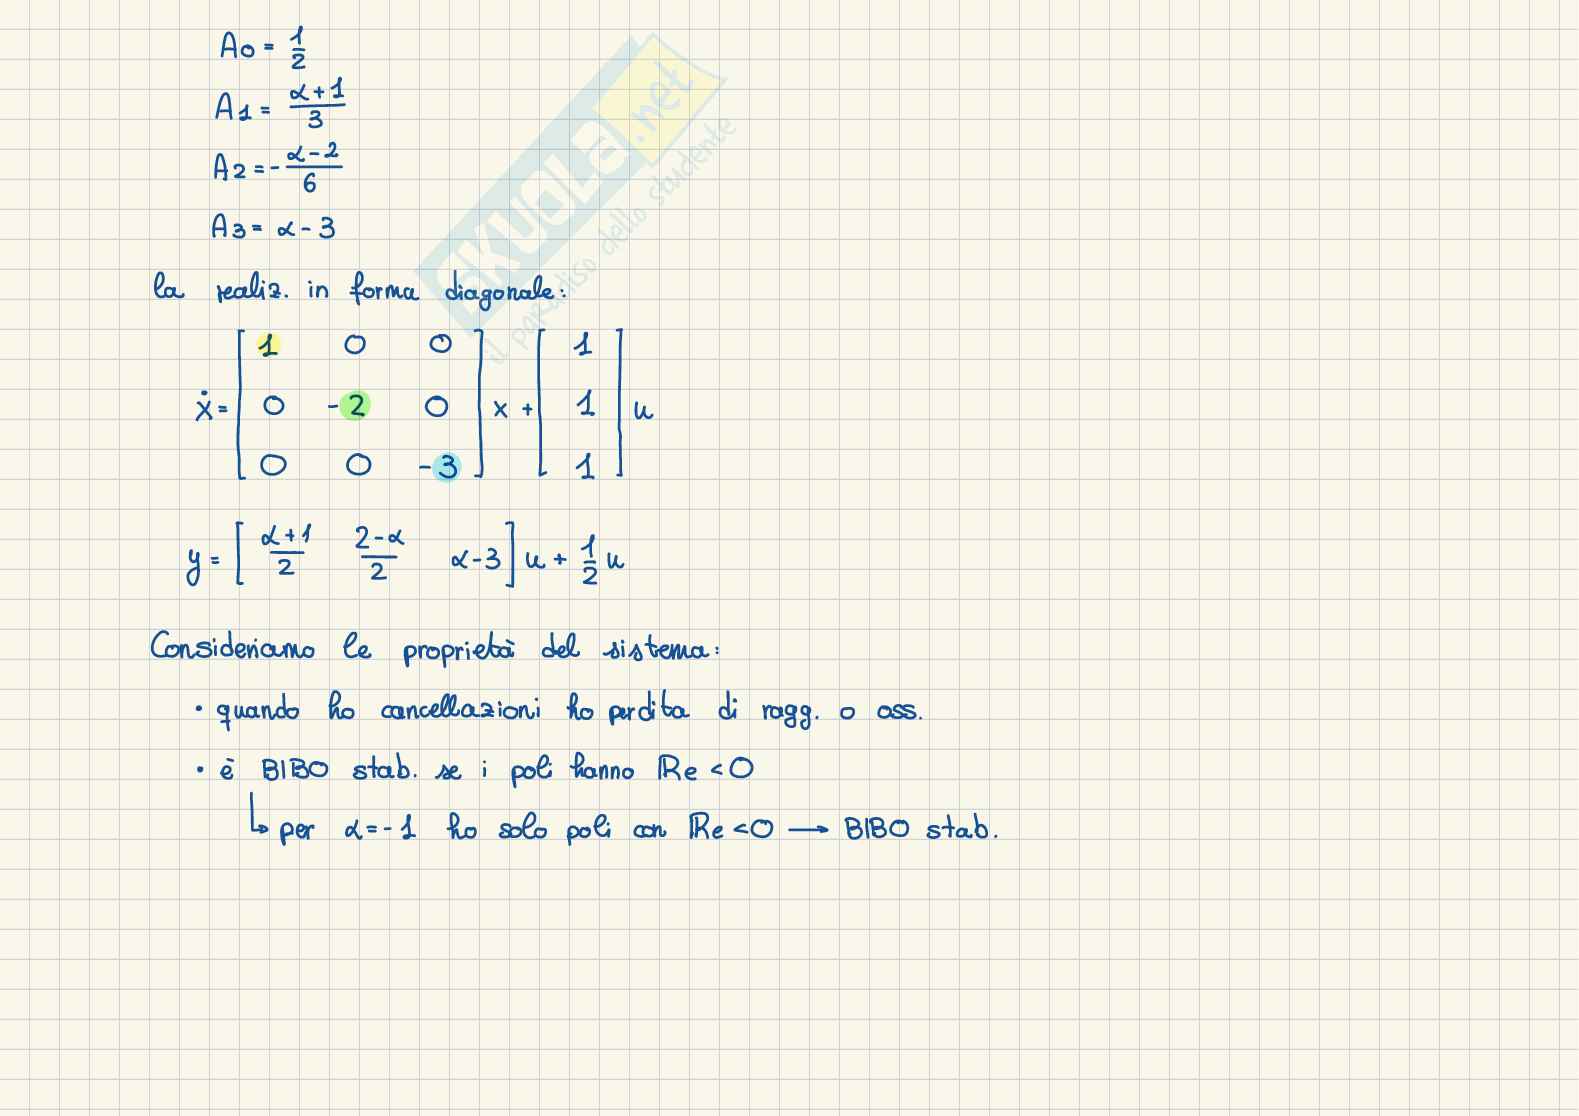 A0 = 1/2
A1 = α+1/3
A2 = - α-2/6
A3 = α-3
la realiz. in forma diagonale:
ẋ = [ 1 0 0 ; 0 -2 0 ; 0 0 -3 ] x + [ 1 ; 1 ; 1 ] u
y = [ α+1/2 2-α/2 α-3 ] u + 1/2 u
Consideriamo le proprietà del sistema:
• quando ho cancellazioni ho perdita di ragg. o oss.
• è BIBO stab. se i poli hanno Re <0
↳ per α=-1 ho solo poli con Re <0 → BIBO stab.
SKUOLA.net
il paradiso dello studente